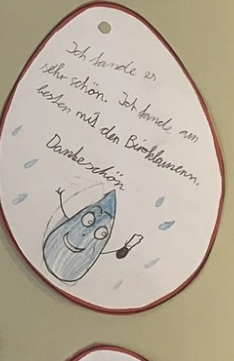 Ich fande es
sehr schön. Ich fande am
besten mit den Büroklamenn.
Dankeschön